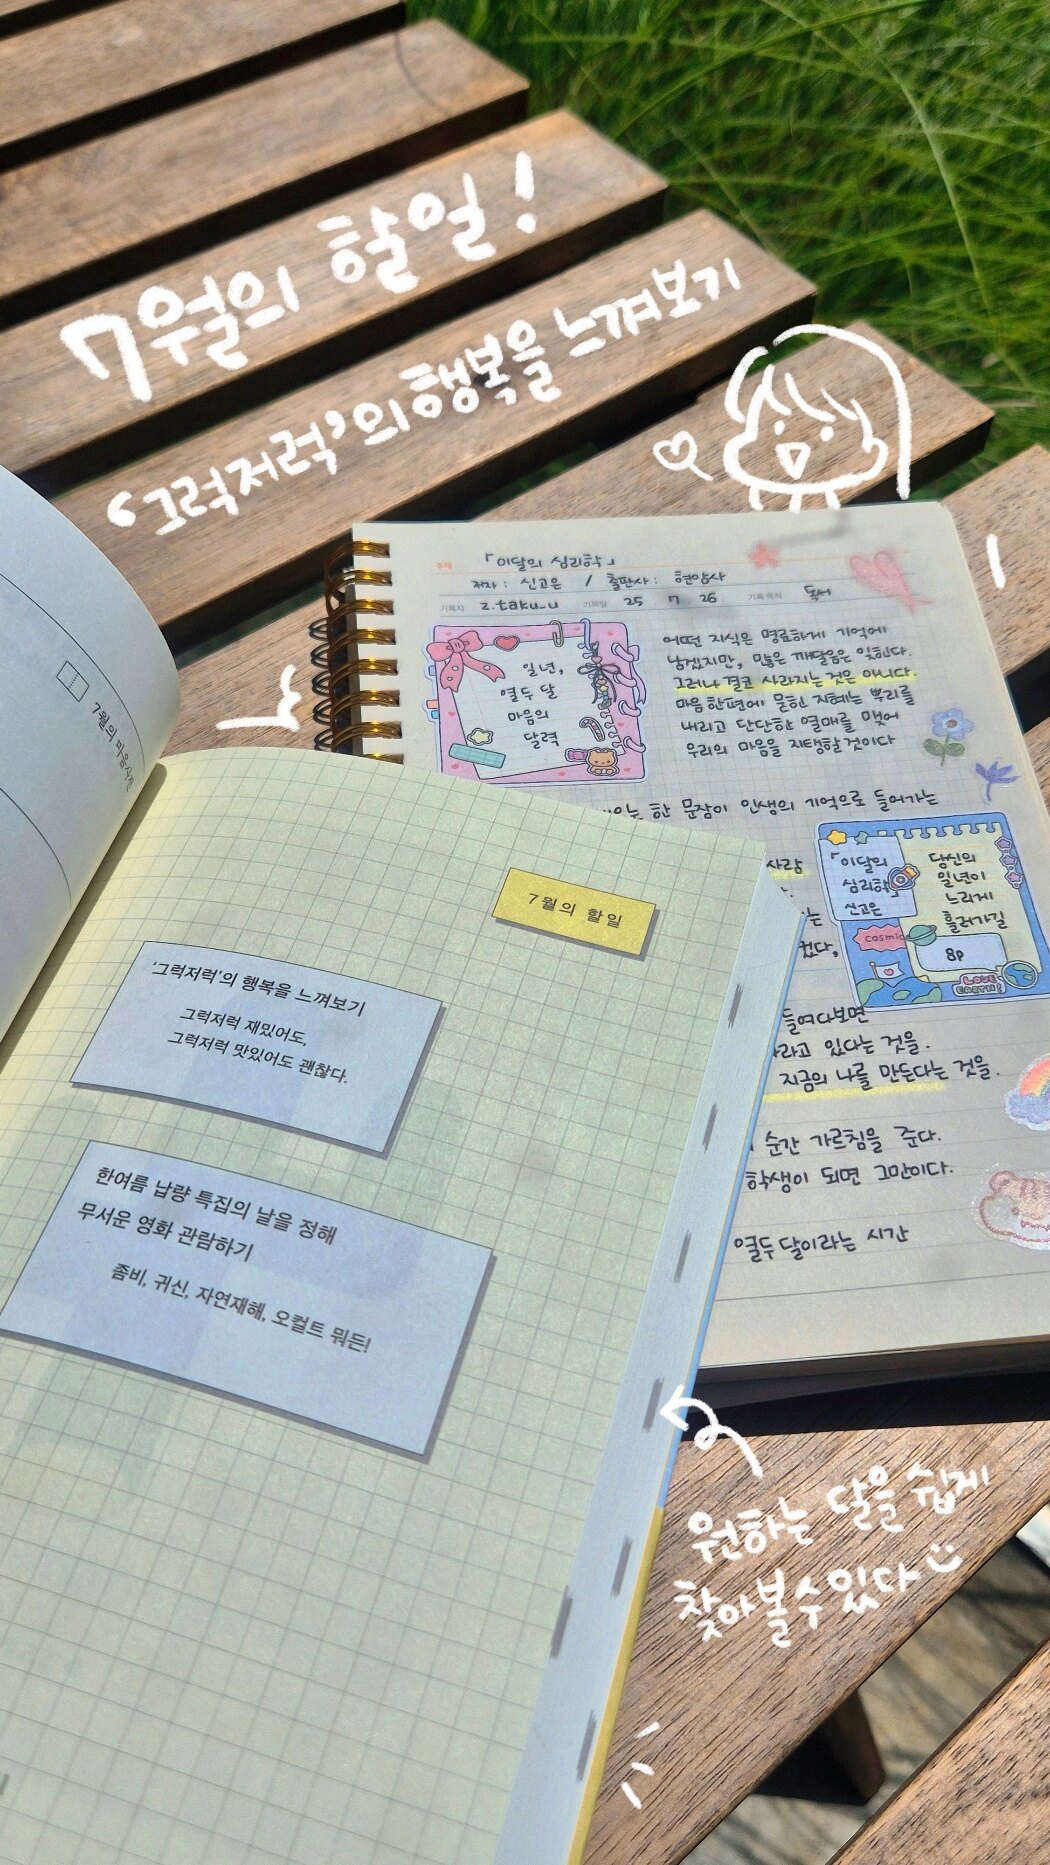 7월의 할일!
'그럭저럭'의 행복을 느껴보기
주제
「이달의 심리학」
저자 : 신고은 / 출판사 : 현암사
기록자 z.taku_u 기록일 25 7 26 기록 목적 독서
일년,
열두 달
마음의
달력
어떤 지식은 명료하게 기억에
남겠지만, 많은 깨달음은 잊힌다.
그러나 결코 사라지는 것은 아니다.
마음 한편에 묻힌 지혜는 뿌리를
내리고 단단한 열매를 맺어
우리의 마음을 지탱할 것이다
한 문장이 인생의 기억으로 들어가는
사람
는
컸다,
「이달의
심리학」
신고은
당신의
일년이
느리게
흘러가길
cosmic
8p
LOVE
EARTH!
들여다보면
라고 있다는 것을.
지금의 나를 만든다는 것을.
순간 가르침을 준다.
학생이 되면 그만이다.
열두 달이라는 시간
7월의 마음사전
7월의 할일
'그럭저럭'의 행복을 느껴보기
그럭저럭 재밌어도,
그럭저럭 맛있어도 괜찮다.
한여름 납량 특집의 날을 정해
무서운 영화 관람하기
좀비, 귀신, 자연재해, 오컬트 뭐든!
원하는 달을 쉽게
찾아볼 수 있다